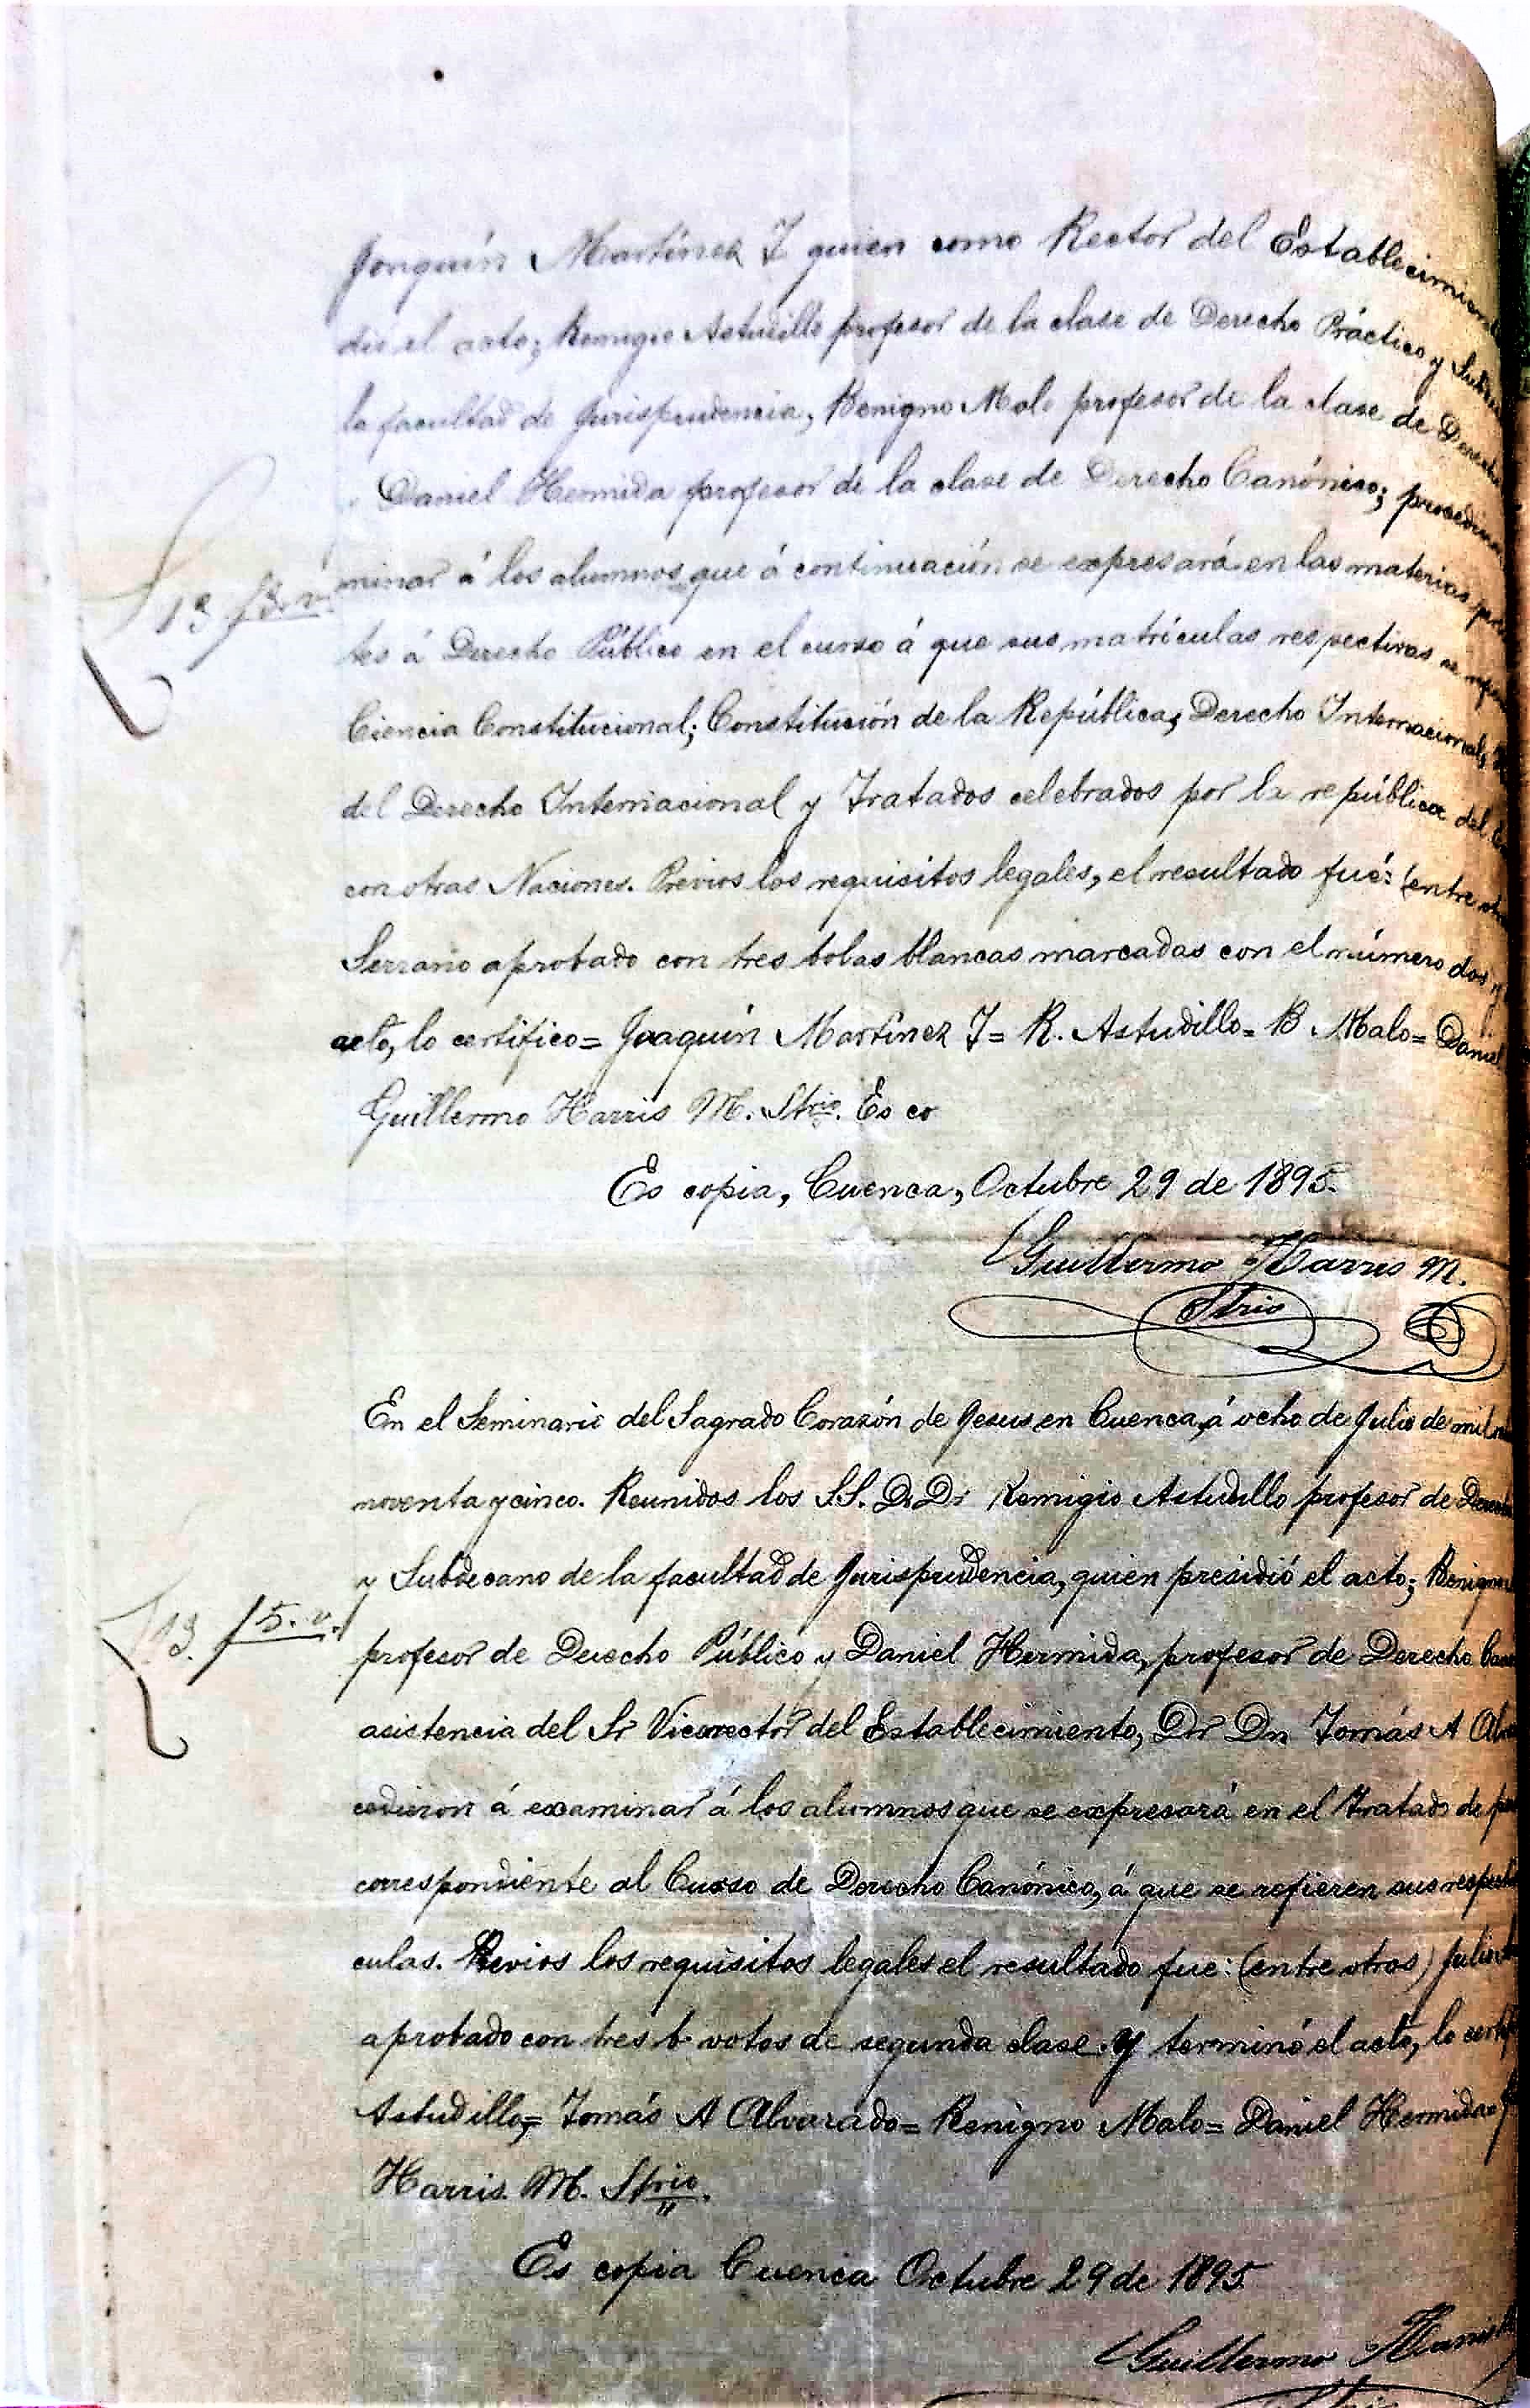 Joaquín Martínez T quien como Rector del Establecimien
dió el acto; Remigio Astudillo profesor de la clase de Derecho Práctico y Subde
la facultad de Jurisprudencia, Benigno Malo profesor de la clase de Derecho
Daniel Hermida profesor de la clase de Derecho Canónico; procedieron
13 f 3. v. minar á los alumnos que á continuación se expresará en las materias
tes á Derecho Público en el curso á que sus matrículas respectivas se
Ciencia Constitucional; Constitución de la República, Derecho Internacional,
del Derecho Internacional y Tratados celebrados por la república del
con otras Naciones. Previos los requisitos legales, el resultado fué: (entre
Serrano aprobado con tres bolas blancas marcadas con el número dos y
acto, lo certifico = Joaquín Martínez T = R. Astudillo = B Malo = Daniel
Guillermo Harris M. Strio. Es co
Es copia, Cuenca, Octubre 29 de 1895.
Guillermo Harris M.
Strio
En el Seminario del Sagrado Corazón de Jesus en Cuenca, á ocho de Julio de mil
noventa y cinco. Reunidos los S.S. D.Dr Remigio Astudillo profesor de Derecho
y Subdecano de la facultad de Jurisprudencia, quien presidió el acto; Benigno
13. f 5. v. profesor de Derecho Público y Daniel Hermida, profesor de Derecho
asistencia del Sr Vicerector del Establecimiento, Dr Dn Tomás A
cedieron á examinar á los alumnos que se expresará en el tratado de
correspondiente al Curso de Derecho Canónico, á que se refieren sus
culas. Previos los requisitos legales el resultado fue: (entre otros) Julio
aprobado con tres b. votos de segunda clase. Y terminó el acto, lo
Astudillo = Tomás A Alvarado = Benigno Malo = Daniel Hermida =
Harris. M. Strio.
Es copia Cuenca Octubre 29 de 1895
Guillermo Harris
Strio